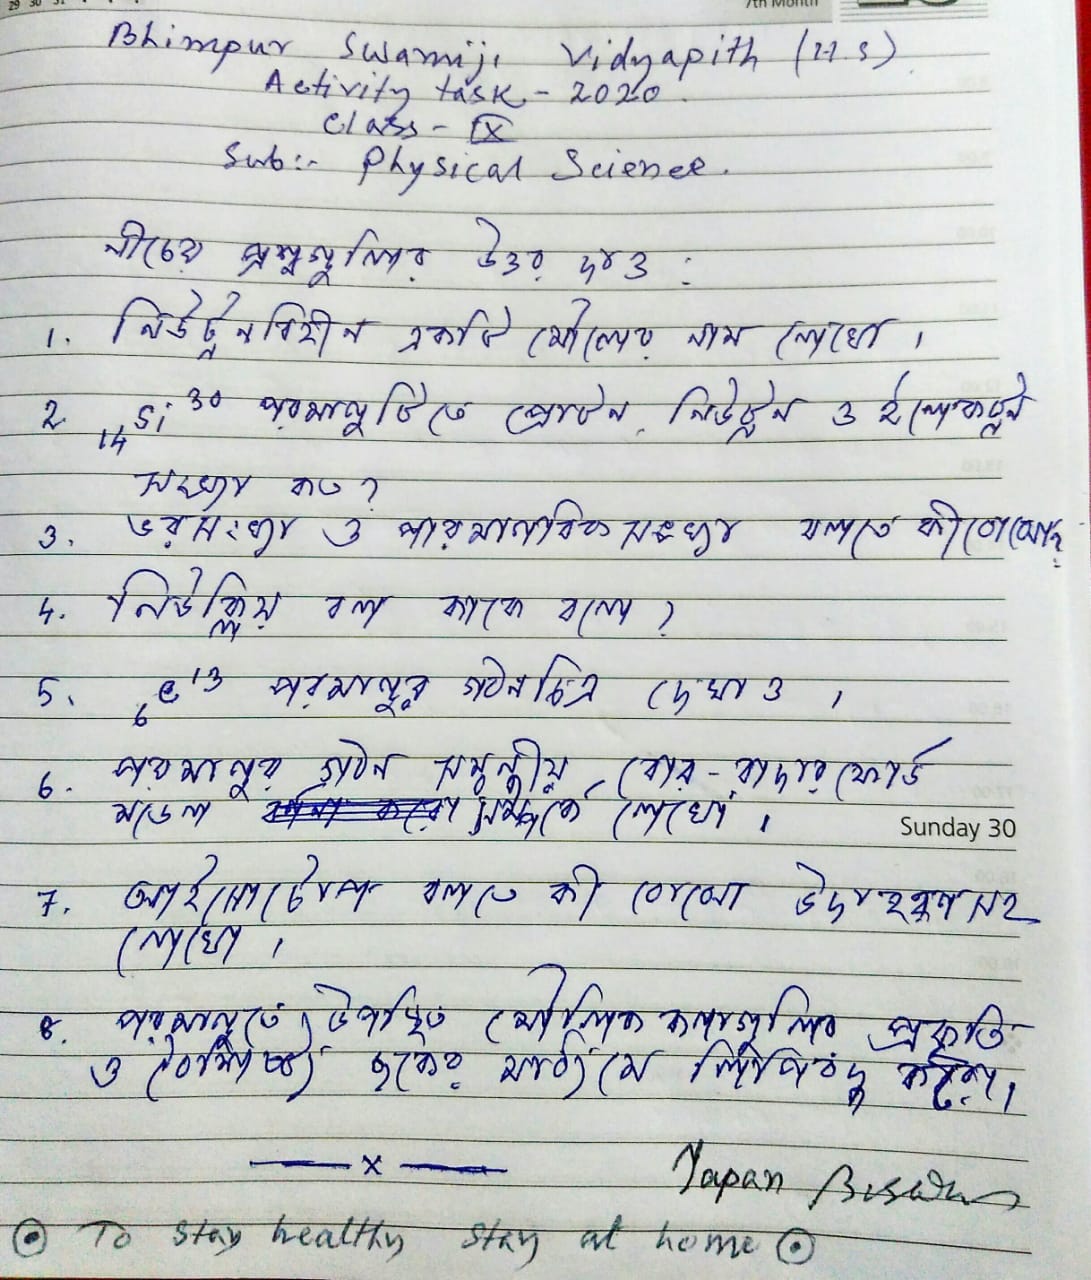 29 30 31
7th Month
Bhimpur Swamiji Vidyapith (H.S)
Activity task - 2020
Class - IX
Sub:- Physical Science.
নীচের প্রশ্নগুলির উত্তর দাও :
1. নিউট্রনবিহীন একটি মৌলের নাম লেখো ।
2 14Si30 পরমাণুটিতে প্রোটন, নিউট্রন ও ইলেকট্রন
সংখ্যা কত ?
3. ভরসংখ্যা ও পারমাণবিক সংখ্যা বলতে কী বোঝো?
4. নিউক্লিয় বল কাকে বলে ?
5. 6C13 পরমাণুর গঠনচিত্র দেখাও ।
6. পরমাণুর গঠন সম্বন্ধীয় বোর-রাদারফোর্ড
মডেল সম্পর্কে লেখো ।
Sunday 30
7. আইসোটোপ বলতে কী বোঝো উদাহরণসহ
লেখো ।
8. পরমাণুতে উপস্থিত মৌলিক কণাগুলির প্রকৃতি
ও বৈশিষ্ট্য ছকের মাধ্যমে লিপিবদ্ধ করো।
— x —
Tapan Biswas
To stay healthy stay at home